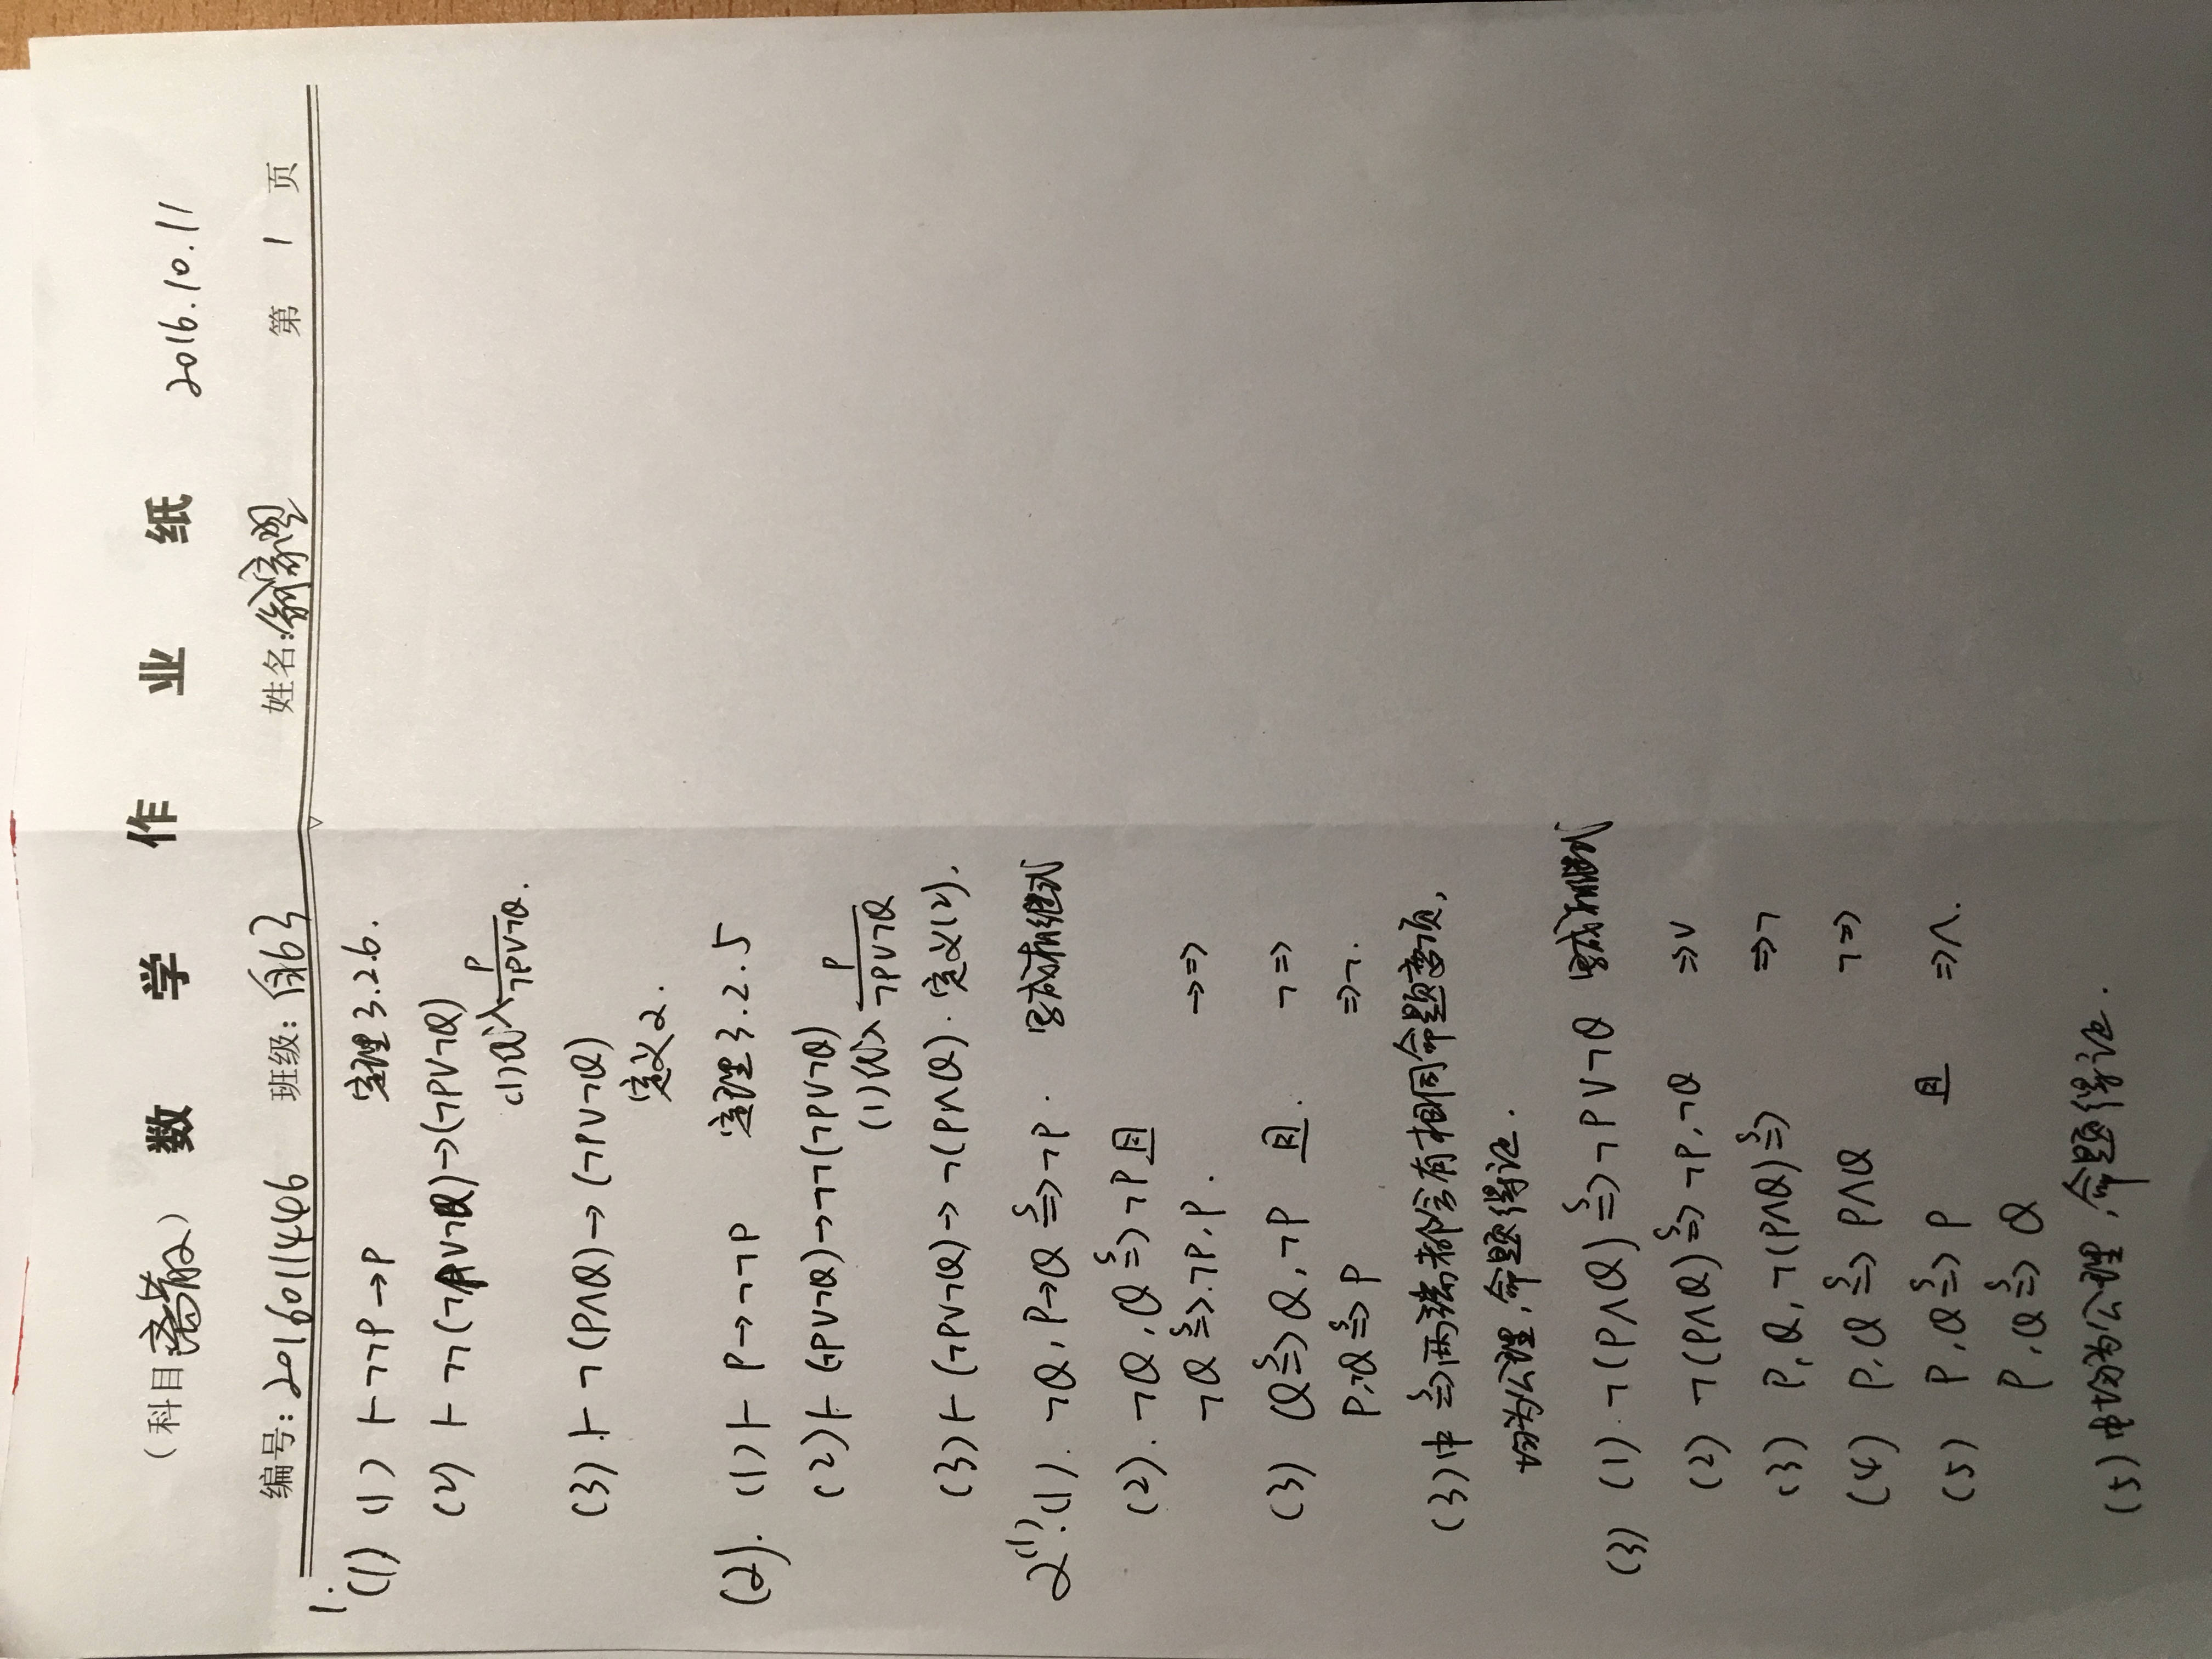 (科目 离散) 数 学 作 业 纸 2016.10.11
编号: 2016011446 班级: 自63 姓名: 翁家翌 第 1 页
1.
(1) (1) ⊢¬¬P→P 定理3.2.6.
(2) ⊢ ¬¬(¬P∨¬Q)→(¬P∨¬Q)
(1)代入 P/(¬P∨¬Q).
(3) ⊢ ¬(P∧Q)→(¬P∨¬Q)
定义2.
(2). (1)⊢ P→¬¬P 定理3.2.5
(2)⊢ (¬P∨¬Q)→¬¬(¬P∨¬Q)
(1)代入 P/(¬P∨¬Q)
(3)⊢ (¬P∨¬Q)→¬(P∧Q). 定义(2).
2.(1) (1). ¬Q, P→Q ⇒ˢ ¬P. 写成相继式
(2). ¬Q, Q ⇒ˢ ¬P 且
¬Q ⇒ˢ ¬P, P. →⇒
(3) Q ⇒ˢ Q, ¬P 且. ¬⇒
P,¬Q ⇒ˢ P ⇒¬.
(3)中 ⇒ˢ 两端都含有相同命题变项,
均为公理,命题得证.
(3) (1). ¬(P∧Q) ⇒ˢ ¬P∨¬Q 写成相继式
(2) ¬(P∧Q) ⇒ˢ ¬P,¬Q ⇒∨
(3) P, Q, ¬(P∧Q) ⇒ˢ ⇒¬
(4) P, Q ⇒ˢ P∧Q ¬⇒
(5) P, Q ⇒ˢ P 且 ⇒∧.
P, Q ⇒ˢ Q
(5)中均为公理,命题得证.